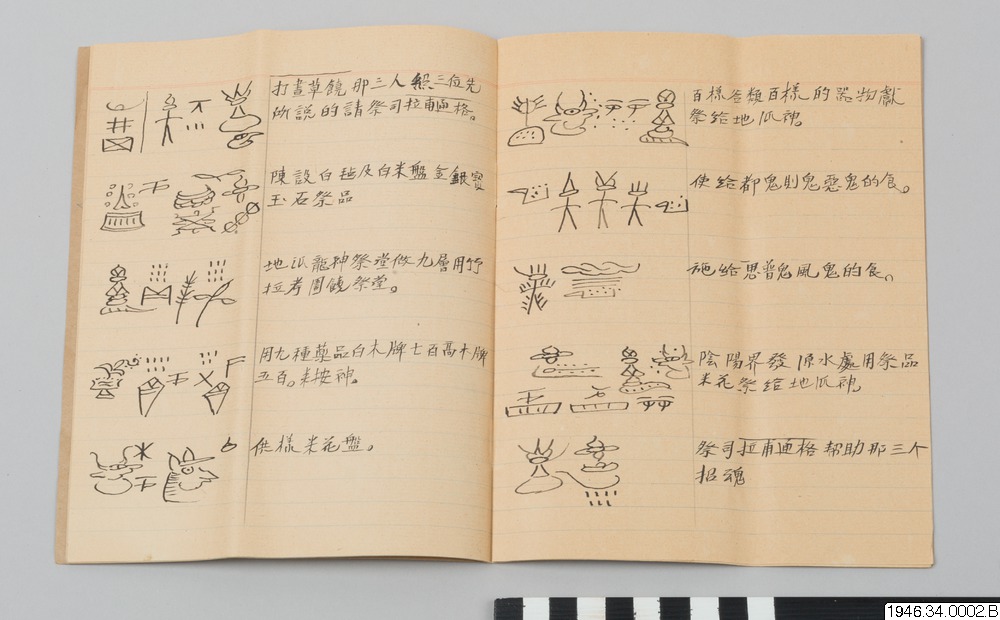 打晝草饒那三人 三位先
所說的請祭司拉甫通格。
陳設白毡及白米盤金銀寳
玉石祭品
地瓜龍神祭堂做九層用竹
拉考圍饒祭堂。
用九種藥品白木牌七百高木牌
五百。来按神。
供樣米花盤。
百樣 類百樣的器物獻
祭給地瓜神。
使給都鬼則鬼惡鬼的食。
施給思普鬼風鬼的食。
陰陽界發源水處用祭品
米花祭給地瓜神。
祭司拉甫通格帮助那三个
招魂
1946.34.0002.B